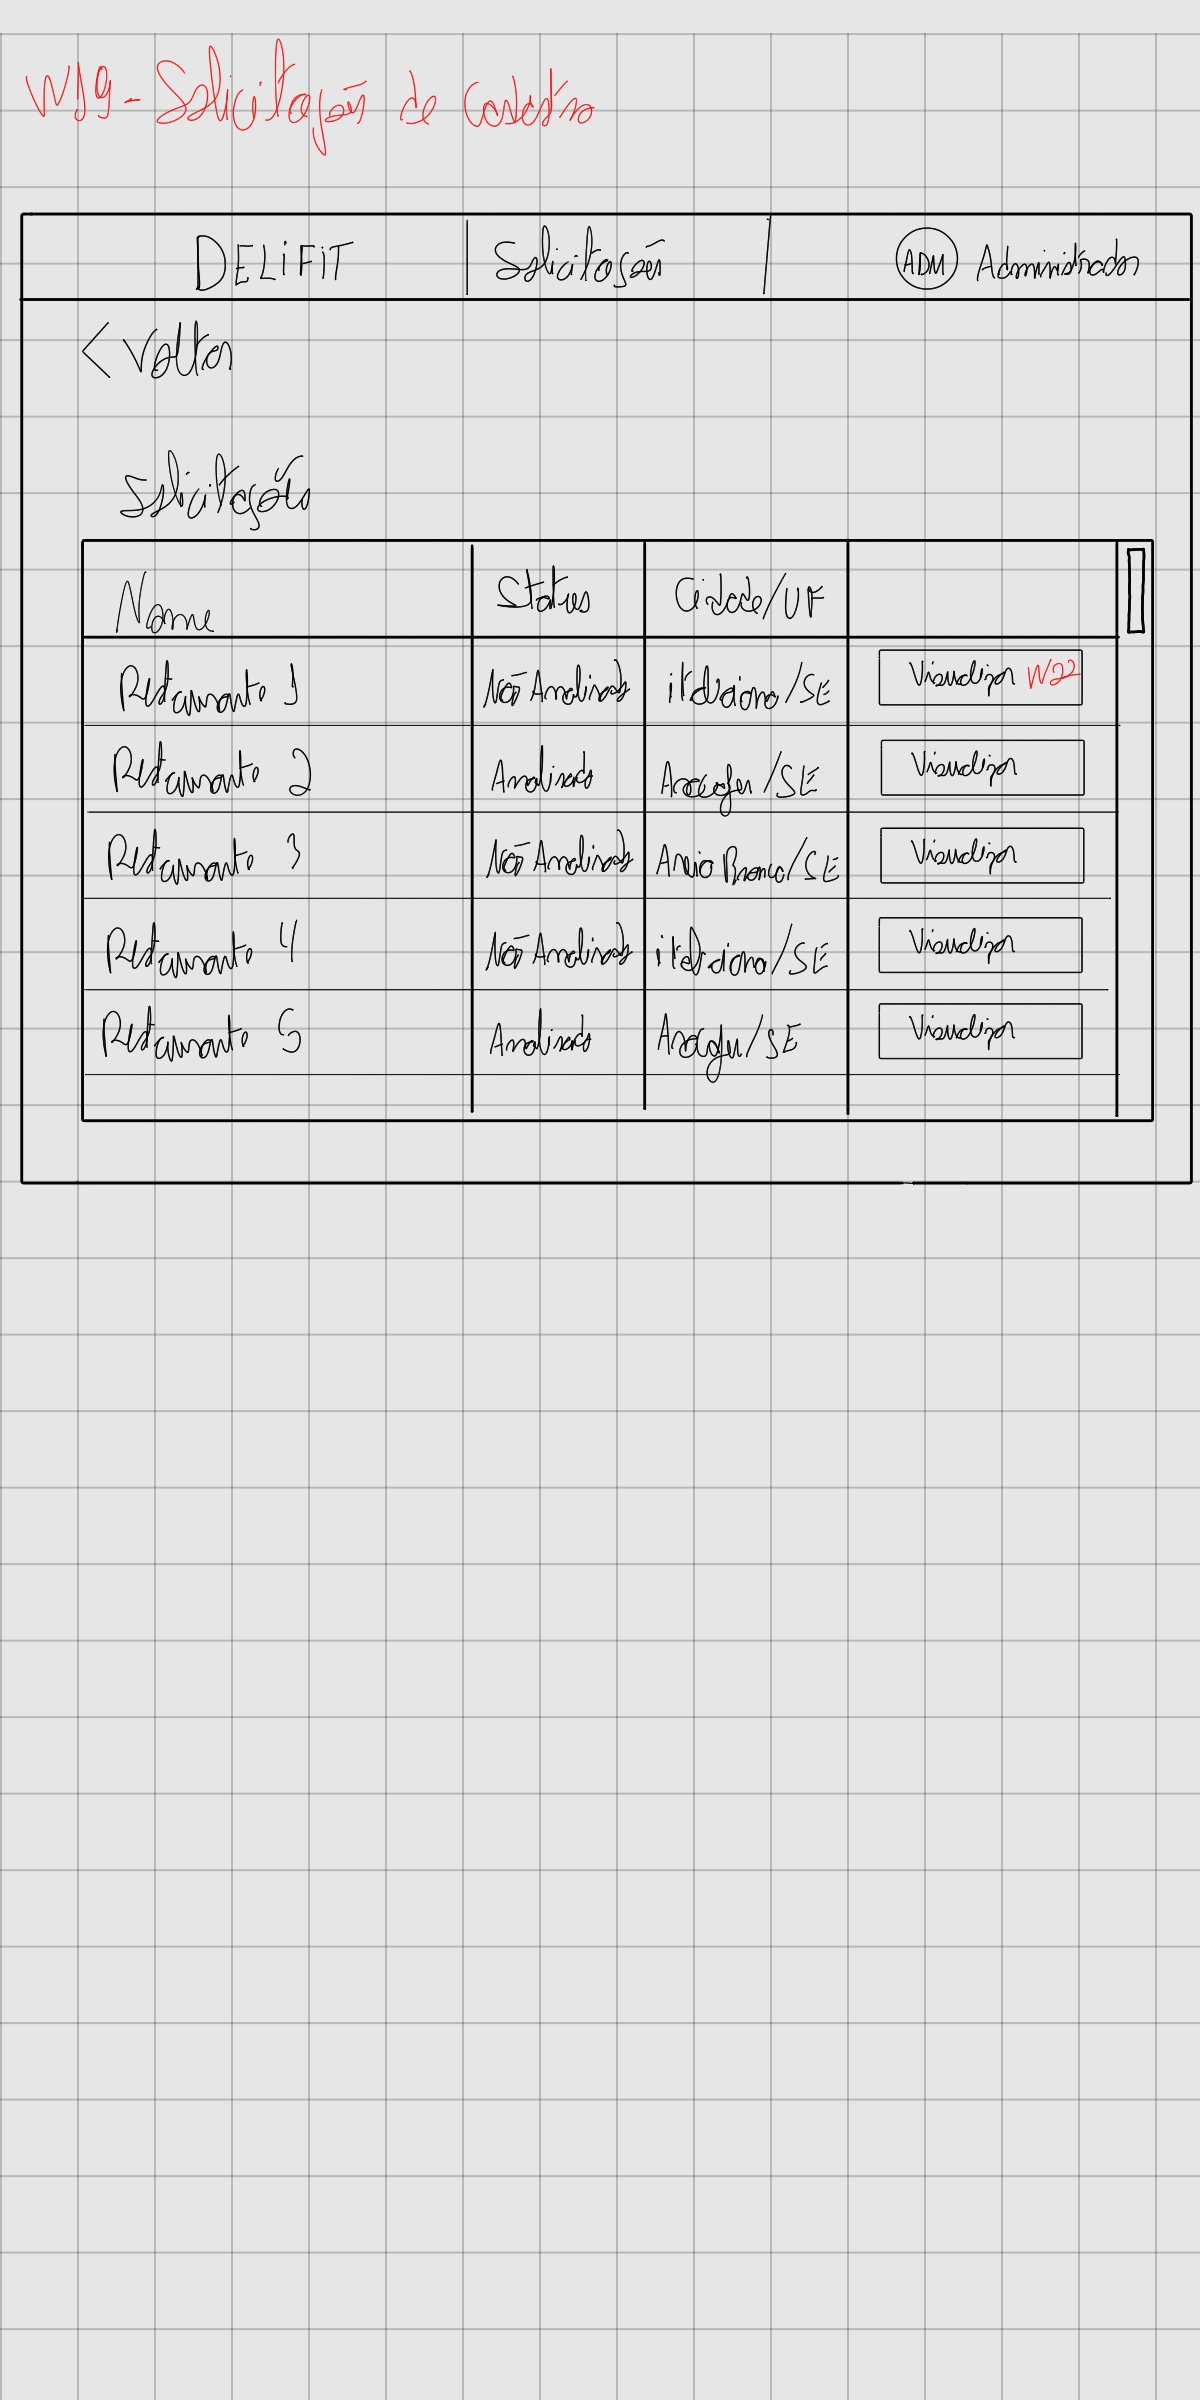 W19 - Solicitações de Cadastro
DELiFiT | Solicitações | ADM Administrador
< Voltar
Solicitações
Nome Status Cidade/UF
Restaurante 1 Não Analisado itabaiana/SE Visualizar W22
Restaurante 2 Analisado Aracaju/SE Visualizar
Restaurante 3 Não Analisado Areia Branca/SE Visualizar
Restaurante 4 Não Analisado itabaiana/SE Visualizar
Restaurante 5 Analisado Aracaju/SE Visualizar